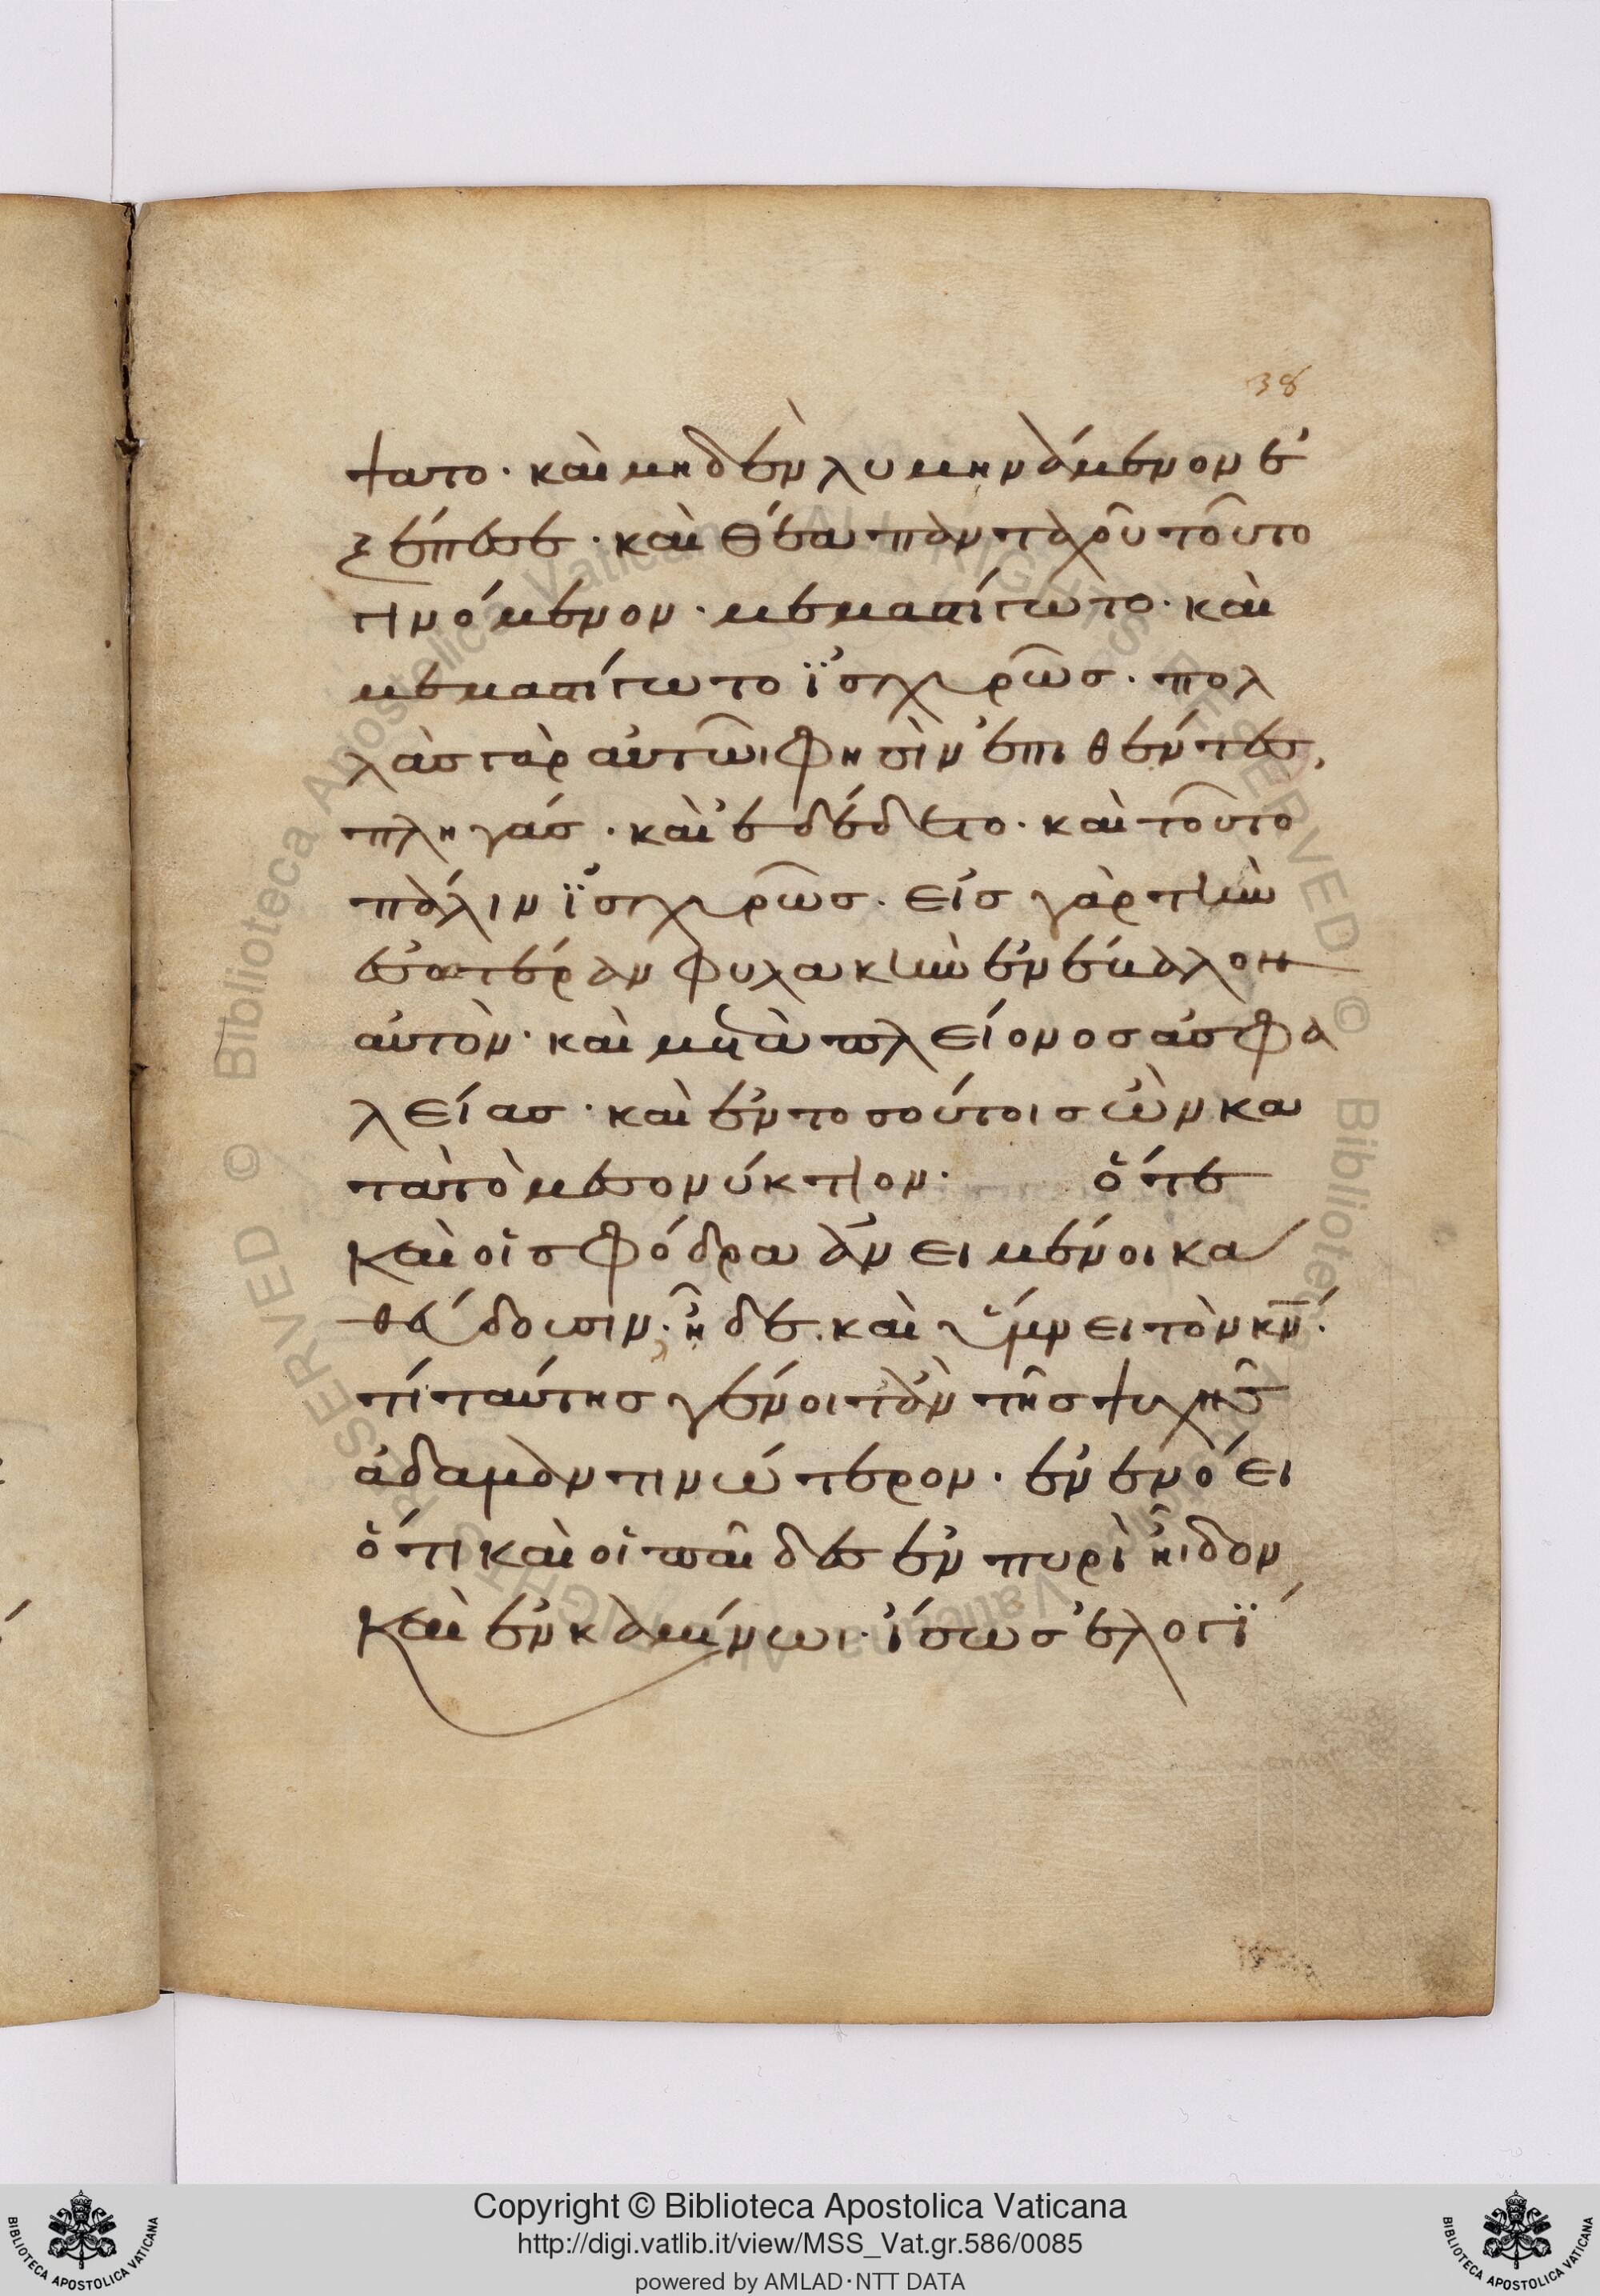 38
ψατο· καὶ μηδὲν λυμηνάμενον ἐ
ξέπεσε· καὶ θέα πανταχοῦ τοῦτο
γινόμενον· μεμαστίγωτο· καὶ
μεμαστίγωτο ϊσχυρῶς· πολ
λὰς γὰρ αὐτῶι φησὶν ἐπιθέντες,
πληγάς· καὶ ἐδέδετο· καὶ τοῦτο
πάλιν ϊσχυρῶς· εἰς γὰρ τὴν
ἐσωτέραν φυλακὴν ἐνέβαλον
αὐτὸν· καὶ μετὰ πλείονος ἀσφα
λείας· καὶ ἐν τοσούτοις ὢν κα
τὰ τὸ μεσονύκτιον· ὅτε
καὶ οἱ σφόδρα ἀνειμένοι κα
θεύδουσιν· ἦδε· καὶ ὕμνει τὸν κ̅ν̅·
τί ταύτης γένοιτ' ἂν τῆς ψυχῆς
ἀδαμαντινώτερον· ἐνενόει
ὅτι καὶ οἱ παῖδες ἐν πυρὶ ἦιδον
καὶ ἐν καμίνωι· ἴσως ἐλογΐ
Copyright © Biblioteca Apostolica Vaticana
http://digi.vatlib.it/view/MSS_Vat.gr.586/0085
powered by AMLAD·NTT DATA
BIBLIOTECA APOSTOLICA VATICANA
BIBLIOTECA APOSTOLICA VATICANA